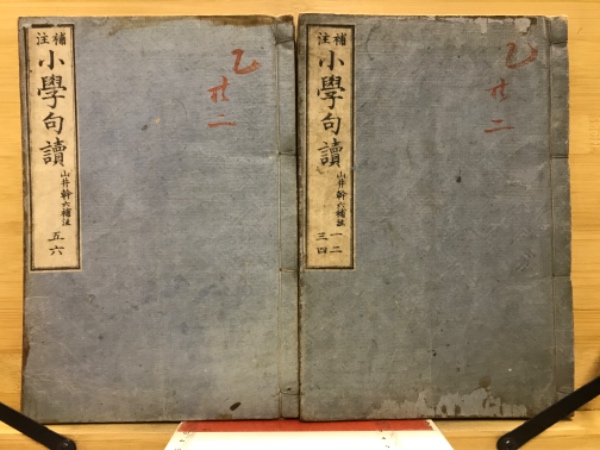 補註
小學句讀
山井幹六補註
一二
三四
乙
二
補註
小學句讀
山井幹六補註
五六
乙
二